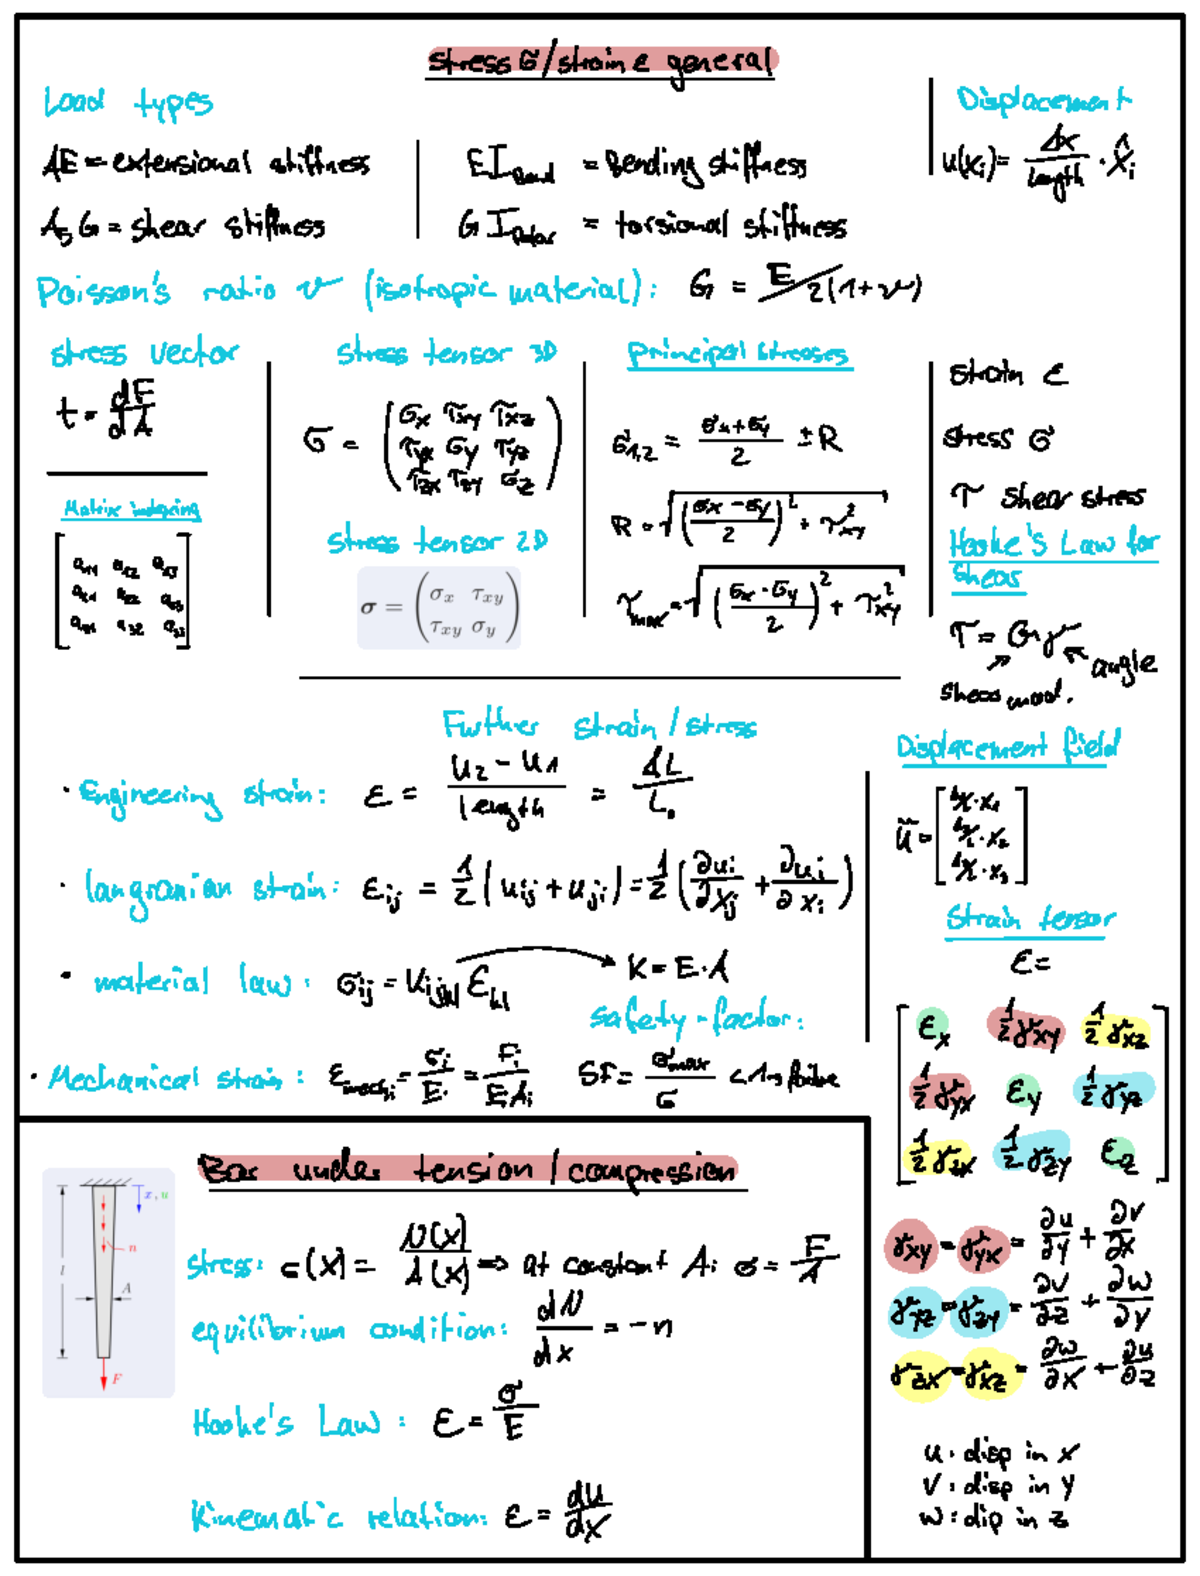 stress σ/strain ε general
Load types
AE = extensional stiffness
A_S G = shear stiffness
EI_Bend = Bending stiffness
G I_Polar = torsional stiffness
Displacement
u(x_i) = Δx/length · x̂_i
Poisson's ratio ν (isotropic material): G = E/2(1+ν)
stress vector
t = dF/dA
Matrix indexing
[a_11 a_12 a_13
a_21 a_22 a_23
a_31 a_32 a_33]
stress tensor 3D
σ = (σ_x τ_xy τ_xz
τ_yx σ_y τ_yz
τ_zx τ_zy σ_z)
stress tensor 2D
σ = (σ_x τ_xy
τ_xy σ_y)
Principal stresses
σ_1,2 = (σ_x+σ_y)/2 ± R
R = √(((σ_x − σ_y)/2)² + τ_xy²)
τ_max = √(((σ_x - σ_y)/2)² + τ_xy²)
strain ε
stress σ
τ shear stress
Hooke's Law for
shear
τ = Gγ
angle
shear mod.
Further strain / stress
· Engineering strain: ε = (u_2 − u_1)/length = ΔL/L_0
· langranian strain: ε_ij = 1/2 (u_ij + u_ji) = 1/2 (∂u_i/∂x_j + ∂u_j/∂x_i)
· material law: σ_ij = K_ijkl ε_kl → K = E·A
safety-factor:
· Mechanical strain: ε_mech,i = σ_i/E = F_i/E_i A_i
SF = σ_max/σ < 1 → failure
Displacement field
ũ = [Δx/L · x_1
Δx/L · x_2
Δx/L · x_3]
Strain tensor
ε =
[ε_x 1/2 γ_xy 1/2 γ_xz
1/2 γ_yx ε_y 1/2 γ_yz
1/2 γ_zx 1/2 γ_zy ε_z]
γ_xy = γ_yx = ∂u/∂y + ∂v/∂x
γ_yz = γ_zy = ∂v/∂z + ∂w/∂y
γ_zx = γ_xz = ∂w/∂x + ∂u/∂z
u: disp in x
v: disp in y
w: dip in z
Bar under tension / compression
x, u
n
l
A
F
stress: σ(x) = N(x)/A(x) ⇒ at constant A: σ = F/A
equilibrium condition: dN/dx = −n
Hooke's Law: ε = σ/E
Kinematic relation: ε = du/dx